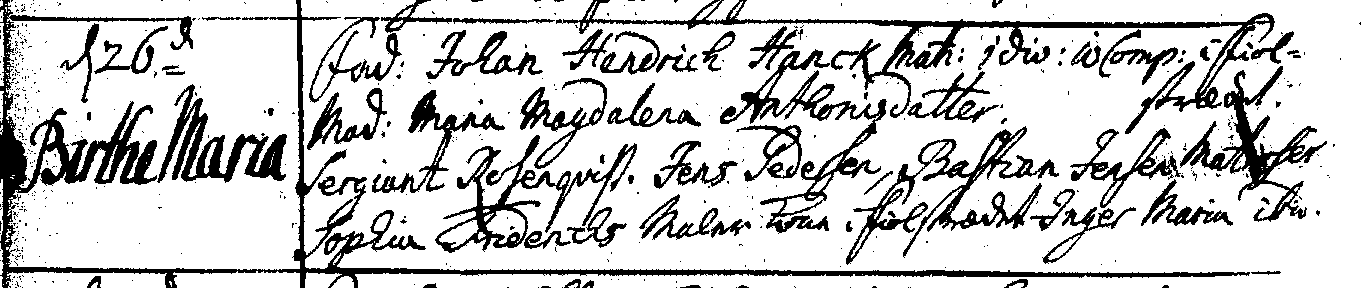 d 26d
Birthe Maria
Fad: Johan Hendrich Hanck Mat: 1 div: Comp: i Fiol-
strædet.
Mod: Maria Magdalena Anthonisdatter.
Sergiant Rosenqvist. Jens Pedersen, Bastian Jensen Matroser
Sophia Friderichs Maler Kone i Fiolstrædet Inger Maria ibid.